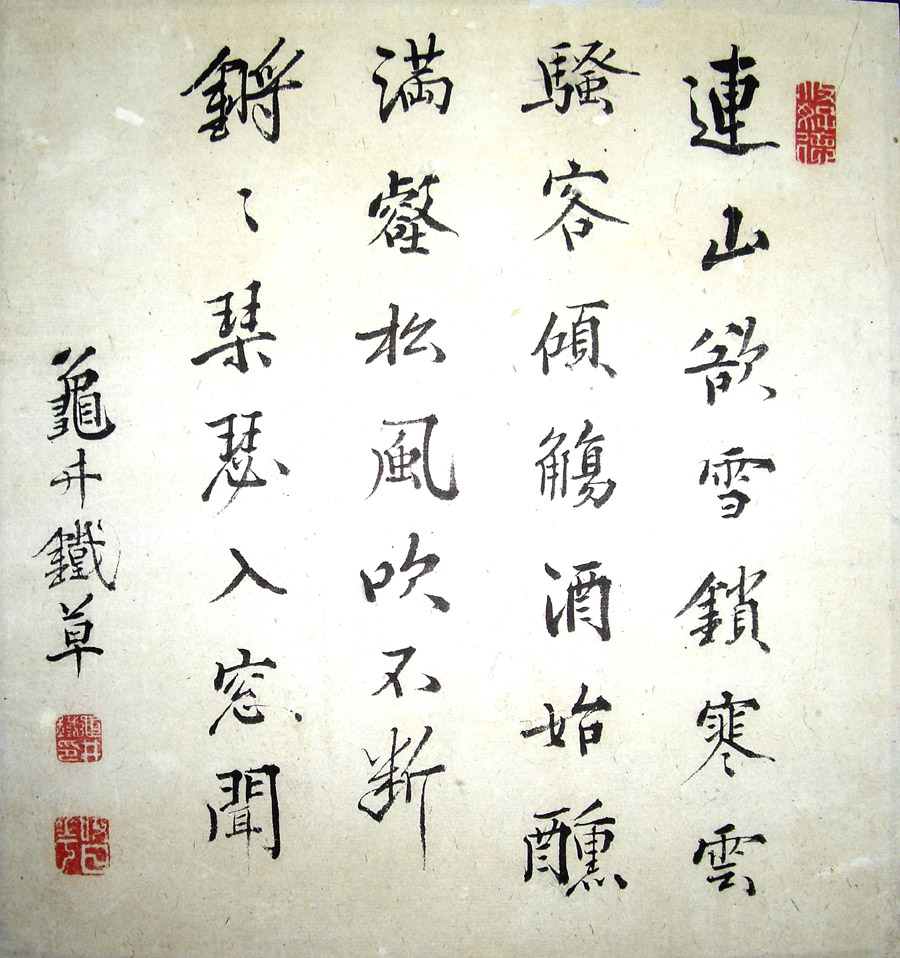 連山欲雪鎖寒雲
騒客傾觴酒始醺
満壑松風吹不断
鏘〻琹瑟入窓聞
龜井鐵草